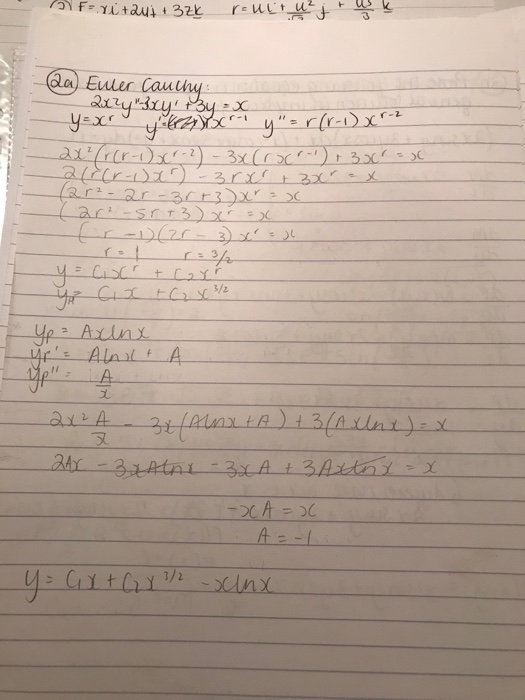 F = xi + 2yj + 3zk r = ui + u²/√2 j + u³/3 k
2a) Euler Cauchy:
2x²y" - 3xy' + 3y = x
y = xʳ y' = rxʳ⁻¹ y" = r(r-1)xʳ⁻²
2x²(r(r-1)xʳ⁻²) - 3x(rxʳ⁻¹) + 3xʳ = x
2(r(r-1)xʳ) - 3rxʳ + 3xʳ = x
(2r² - 2r - 3r + 3)xʳ = x
(2r² - 5r + 3)xʳ = x
(r - 1)(2r - 3)xʳ = x
r = 1 r = 3/2
y = C₁xʳ + C₂xʳ
yH = C₁x + C₂x^3/2
yp = Axlnx
yp' = Alnx + A
yp" = A/x
2x² A/x - 3x(Alnx + A) + 3(Axlnx) = x
2Ax - 3xAlnx - 3xA + 3Axlnx = x
-xA = x
A = -1
y = C₁x + C₂x^3/2 - xlnx